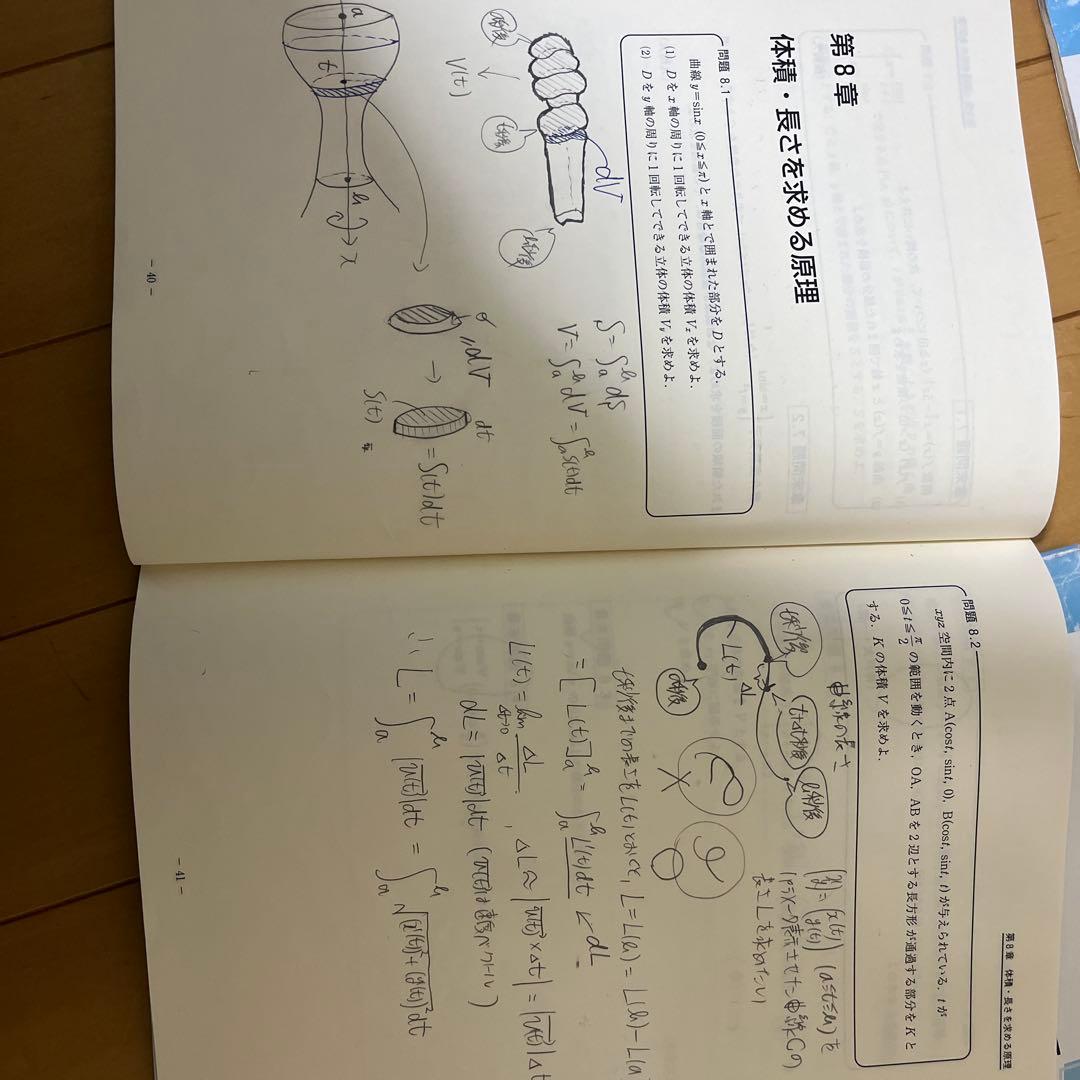 第8章
体積・長さを求める原理
問題 8.1
曲線 y=sinx (0≦x≦π) と x 軸とで囲まれた部分を D とする.
(1) D を x 軸の周りに1回転してできる立体の体積 Vx を求めよ.
(2) D を y 軸の周りに1回転してできる立体の体積 Vy を求めよ.
S=∫ₐᵇ dS
V=∫ₐᵇ dV=∫ₐᵇ S(t)dt
dV
t秒後
b秒後
V(t)
a
t
b
x
dV
dt
S(t)
=S(t)dt
- 40 -
第8章 体積・長さを求める原理
問題 8.2
xyz 空間内に2点 A(cost, sint, 0), B(cost, sint, t) が与えられている. t が
0≦t≦π/2 の範囲を動くとき, OA, AB を2辺とする長方形が通過する部分を K と
する. K の体積 V を求めよ.
曲線の長さ
(x(t), y(t)) (a≦t≦b) を
パラメータ表示させた曲線Cの
長さLを求めたい
t秒後
t+Δt秒後
b秒後
a秒後
L(t)
ΔL
t秒後までの長さをL(t)とおくと, L=L(b)=L(b)-L(a)
=[L(t)]ₐᵇ=∫ₐᵇ L'(t)dt ← dL
L'(t)=lim Δt→0 ΔL/Δt , ΔL≈|v(t)×Δt|=|v(t)|Δt
dL=|v(t)|dt (v(t)は速度ベクトル)
∴ L=∫ₐᵇ |v(t)|dt=∫ₐᵇ √(x'(t))²+(y'(t))² dt
- 41 -